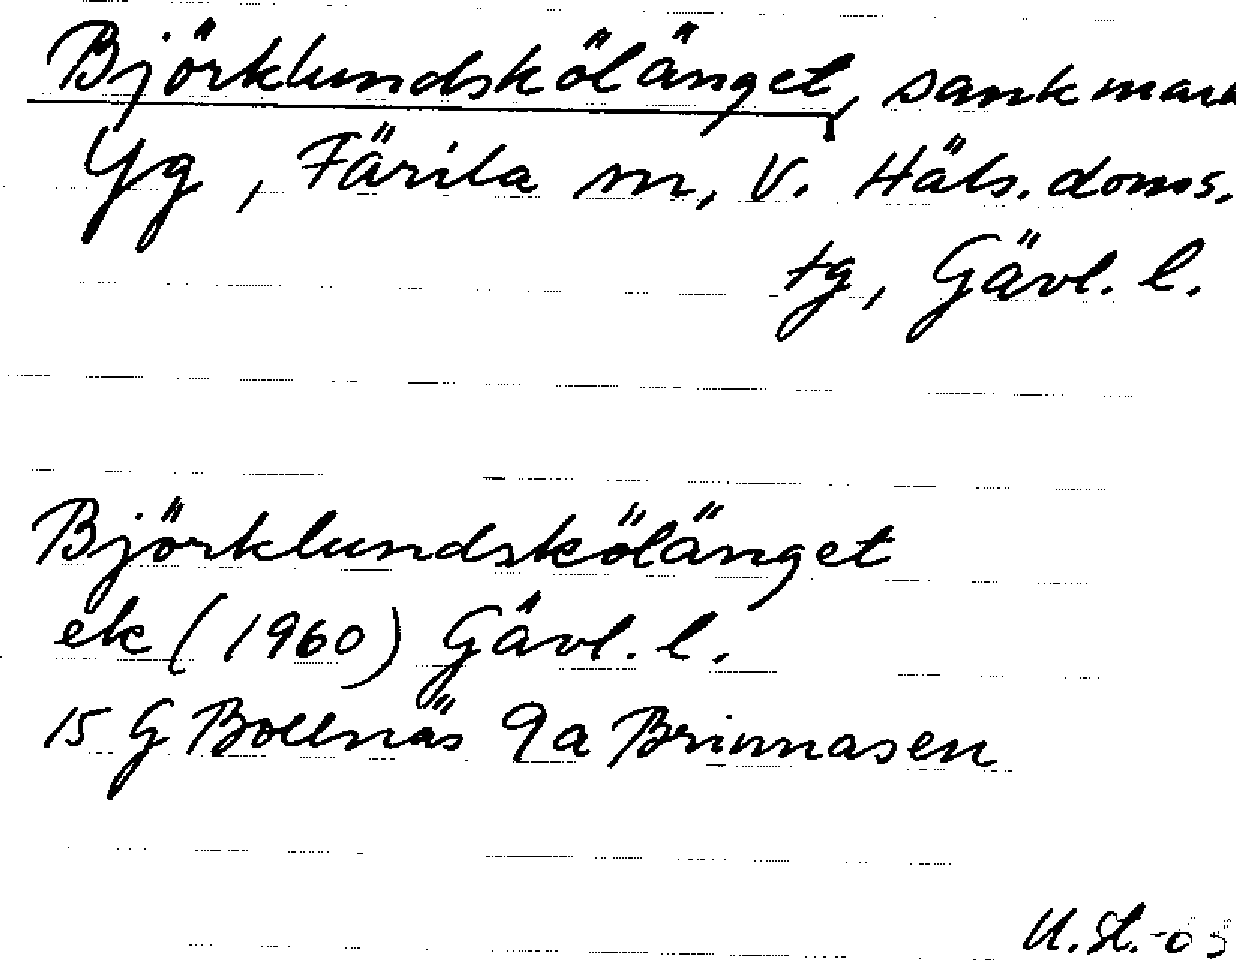 Björklundskölänget, sankmark
Yg, Färila sn, V. Häls. doms.
tg, Gävl. l.
Björklundskölänget
ek (1960) Gävl. l.
15 G Bollnäs 9a Brinnåsen
U. St. -03